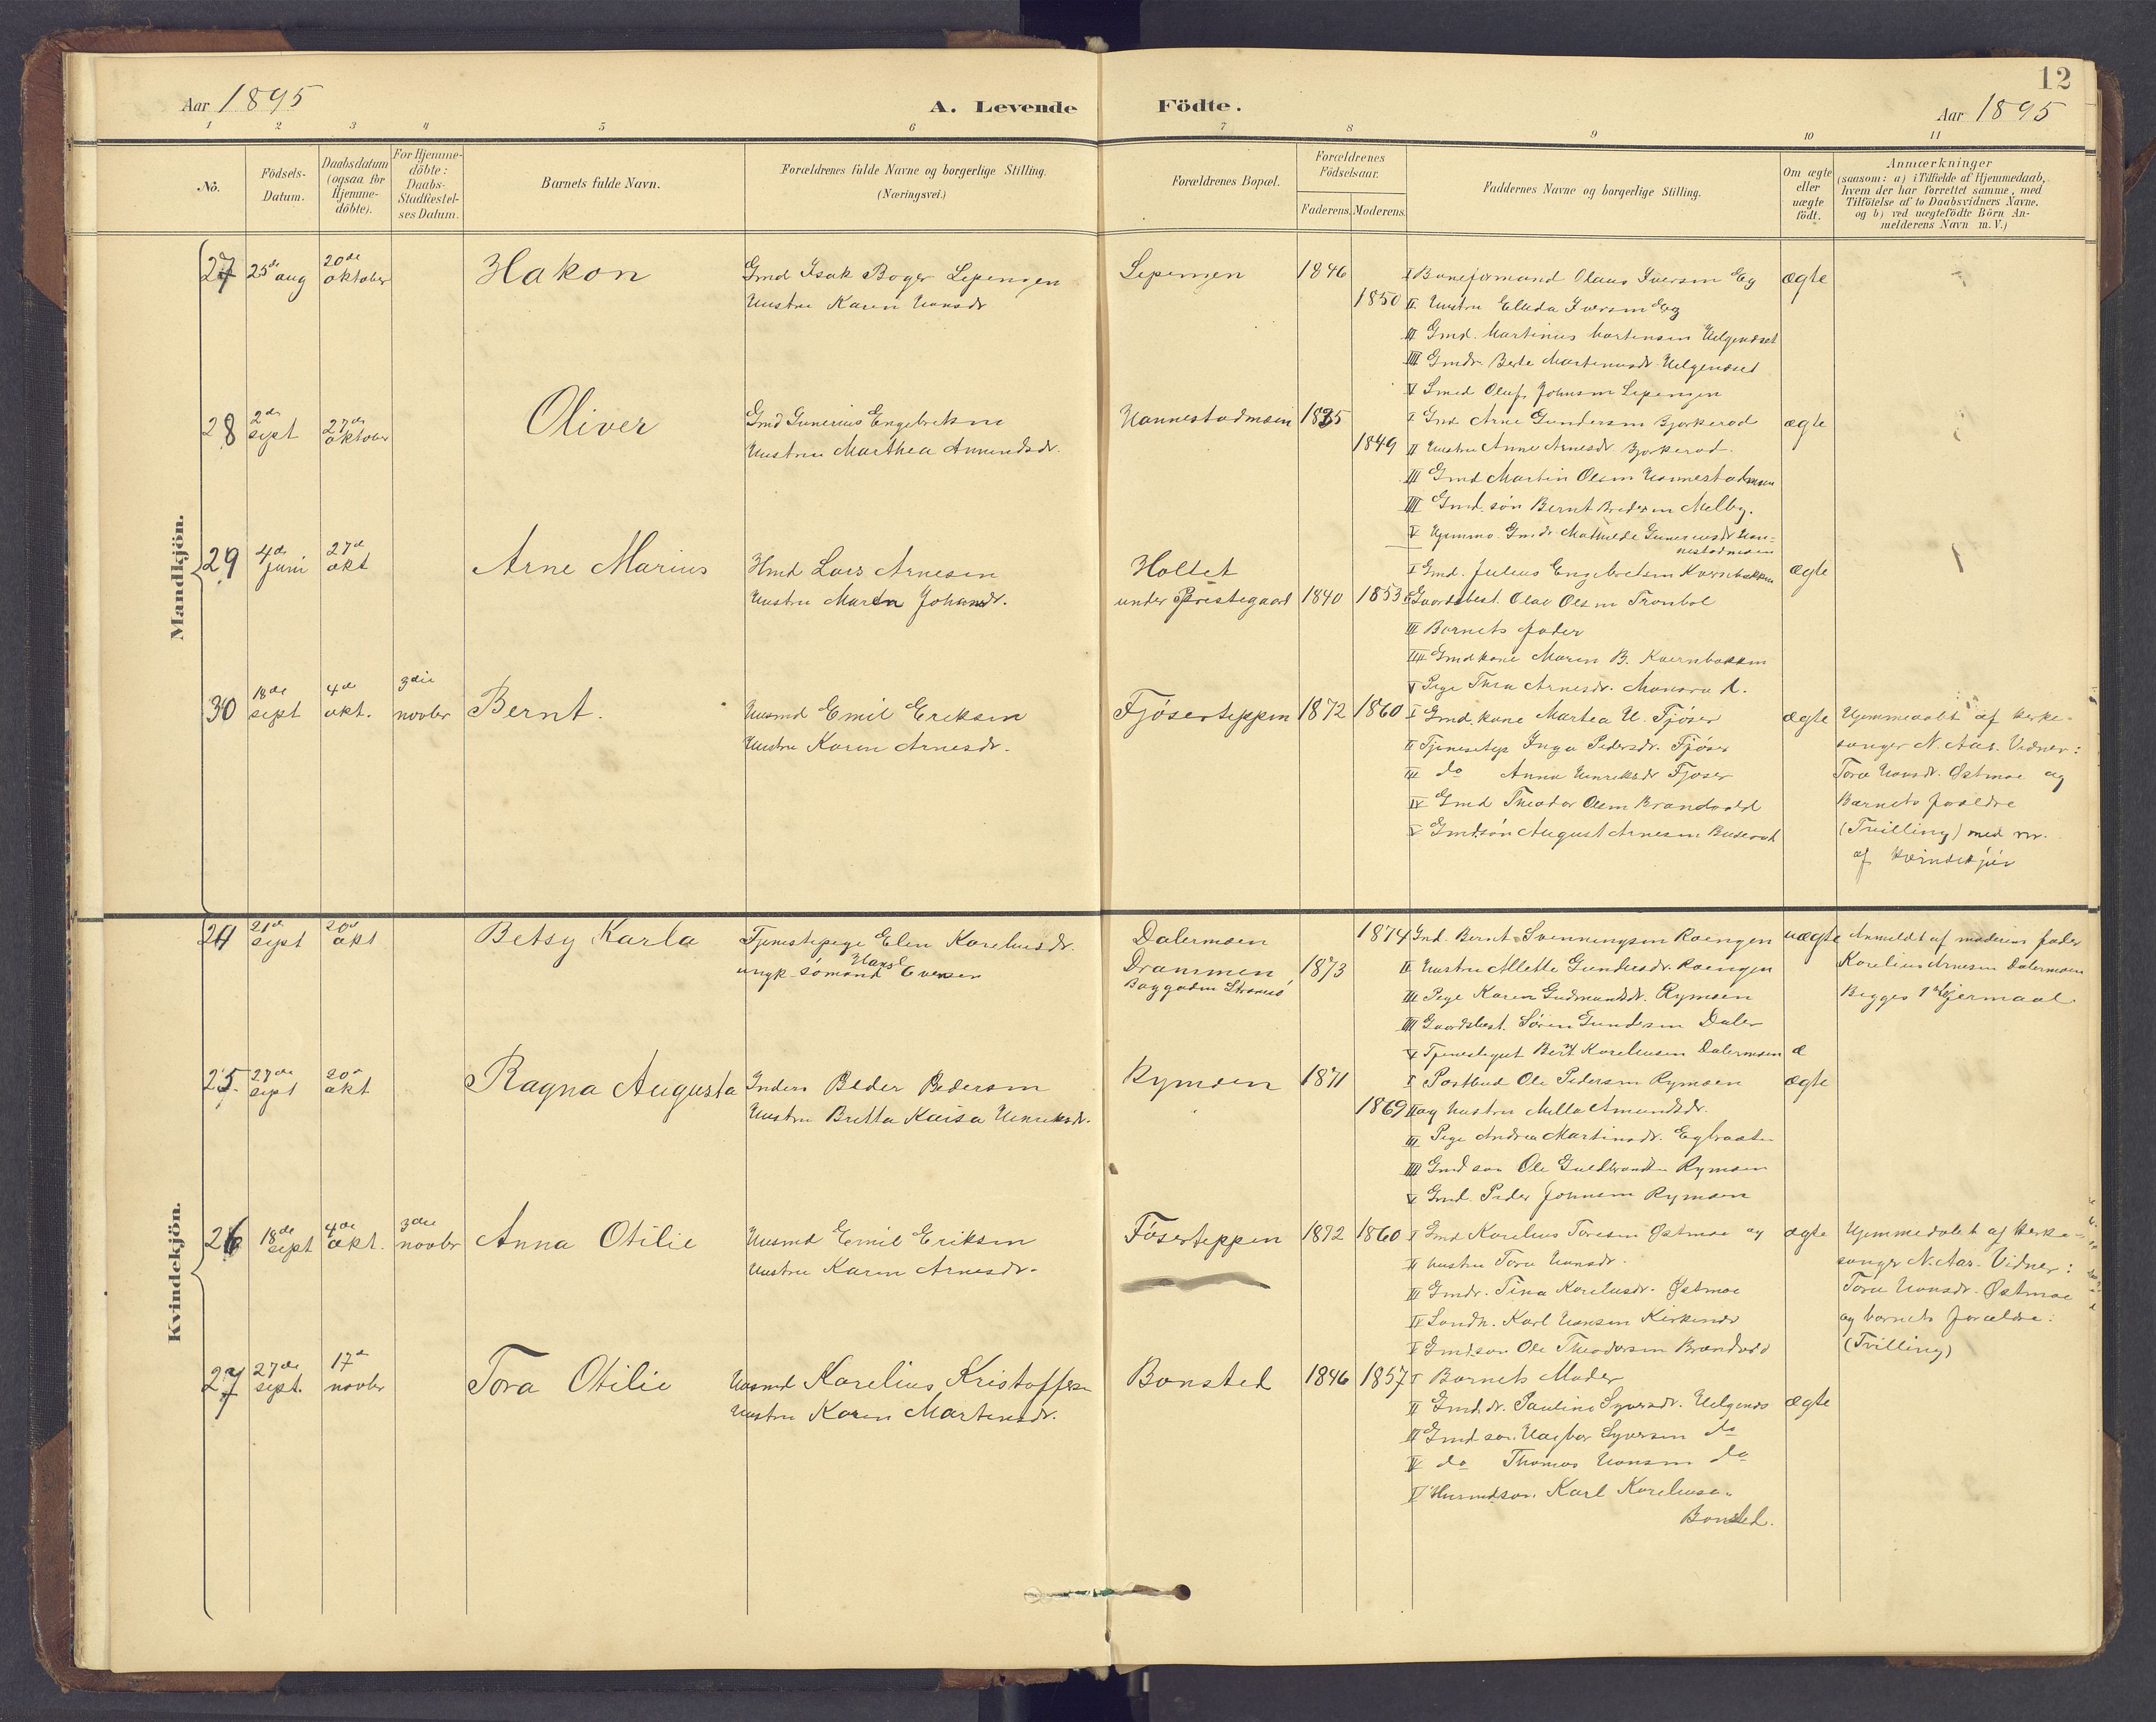 12
Aar 1895
A. Levende Födte.
Aar 1895
1 2 3 4 5 6 7 8 9 10 11
No.
Födsels-Datum.
Daabsdatum (ogsaa for Hjemme-döbte).
For Hjemme-döbte: Daabs-Stadfæstel-ses Datum.
Barnets fulde Navn.
Forældrenes fulde Navne og borgerlige Stilling.
(Næringsvei.)
Forældrenes Bopæl.
Forældrenes Födselsaar.
Faderens. Moderens.
Faddernes Navne og borgerlige Stilling.
Om ægte eller uægte födt.
Anmærkninger
(saasom: a) i Tilfælde af Hjemmedaab,
hvem der har forrettet samme, med
Tilföielse af to Daabsvidners Navne.
og b) ved uægtefödte Börn An-
melderens Navn m. V.)
Mandkjön.
27 25de aug 20de oktober Hakon
Gmd Isak Boger Lepengen
Hustru Karen Hansdr
Lepengen 1846 1850
I Baneformand Olaus Iversen Eg ægte
II Hustru Elleda Iversen Eg
III Gmd. Martinus Martinsen Helgeneset
IIII Gmdr. Berte Martinusdr. Helgeneset
V Smed Oluf Johnsen Lepengen
28 2den sept 27de oktober Oliver
Gmd Gunerius Engebretsen
Hustru Marthea Amundsdr.
Hannestadmoen 1835 1849
I Gmd Arne Gundersen Bjørkerod ægte
II Hustru Anne Arnesdr Bjørkerod.
III Gmd Martin Olsen Hannestadmoen
IIII Gmd. søn Bernt Bredesen Melby.
V Hjemmev. Gmdr. Mathilde Guneriusdr Han-
nestadmoen
29 4de juni 27d okt Arne Marius
Hmd Lars Arnesen
Hustru Maren Johansdr.
Holtet
under Præstegaard 1840 1853
I Gmd. Julius Engebretsen Kvernbakken ægte
II Gaardsbest. Olav Olsen Tronbøl
III Barnets fader
IIII Gmdkone Maren B. Kvernbakken
V Pige Thea Arnesdr.
30 18de sept 4de okt. 3die novbr Bernt.
Husmd Emil Eriksen
Hustru Karen Arnesdr.
Fjøserteppen 1872 1860
I Gmd. kone Martea H. Fjøser ægte
II Tjenestep. Inga Pedersdr. Fjøser
III do Anna Henriksdr Fjøser
IV Gmd Theodor Olsen Brandvold
V Gmdsøn August Arnesen Buserud
Hjemmedøbt af kirke-
sanger N. Aas. Vidner:
Tora Hansdr. Østmoe og
Barnets forældre
(Tvilling) med nr.
af kvindekjøn
Kvindekjön.
24 21de sept 20d okt Betsy Karla
Tjenestepige Elen Koreliusdr.
ungk. sømand Hans Evensen
Dalermoen
Drammen
Baggaden Strømsø 1873 1874
Gmd. Bernt Svenningsen Roengen uægte
II Hustru Allette Gundersdr. Roengen
III Pige Karen Gudmundsdr. Rymoen
IIII Gaardsbest. Søren Gundersen Daler
V Tjenestegut Bernt Koreliusen Dalermoen
Anmeldt af moderens fader
Korelius Arnesen Dalermoen
Begges 1ste Leiermaal
25 27de sept 20d okt Ragna Augusta
Inders Peder Pedersen
Hustru Britta Kaisa Henriksdr.
Rymoen 1871 1869
I Postbud Ole Pedersen Rymoen ægte
II og hustru Mille Amundsdr.
III Pige Andrea Martinsdr. Egbraaten
IIII Gmd søn Ole Guldbrandsen Rymoen
V Gmd. Peder Johnsen Rymoen
26 18de sept 4de okt. 3die novbr Anna Otilie
Husmd Emil Eriksen
Hustru Karen Arnesdr.
Føserteppen 1872 1860
I Gmd Korelius Toresen Østmoe og ægte
II hustru Tora Hansdr.
III Gmdr. Tina Koreliusdr. Østmoe
IV Landh. Karl Hansen Kirkenær
V Gmdsøn Ole Theodorsen Brandvold
Hjemmedøbt af kirke-
sanger N. Aas. Vidner:
Tora Hansdr. Østmoe
og barnets forældre:
(Tvilling)
27 27de sept. 17de novbr Tora Otilie
Husmd Korelius Kristoffersen
Hustru Karen Martinsdr.
Bonsted 1846 1857
I Barnets Moder
II Gmd.dr. Pauline Syversdr. Helgenes ægte
III Gmd søn. Hagbar Syversen do
IV do Thomas Hansen do
V Husmdsøn. Karl Koreliusen
Bonsted.